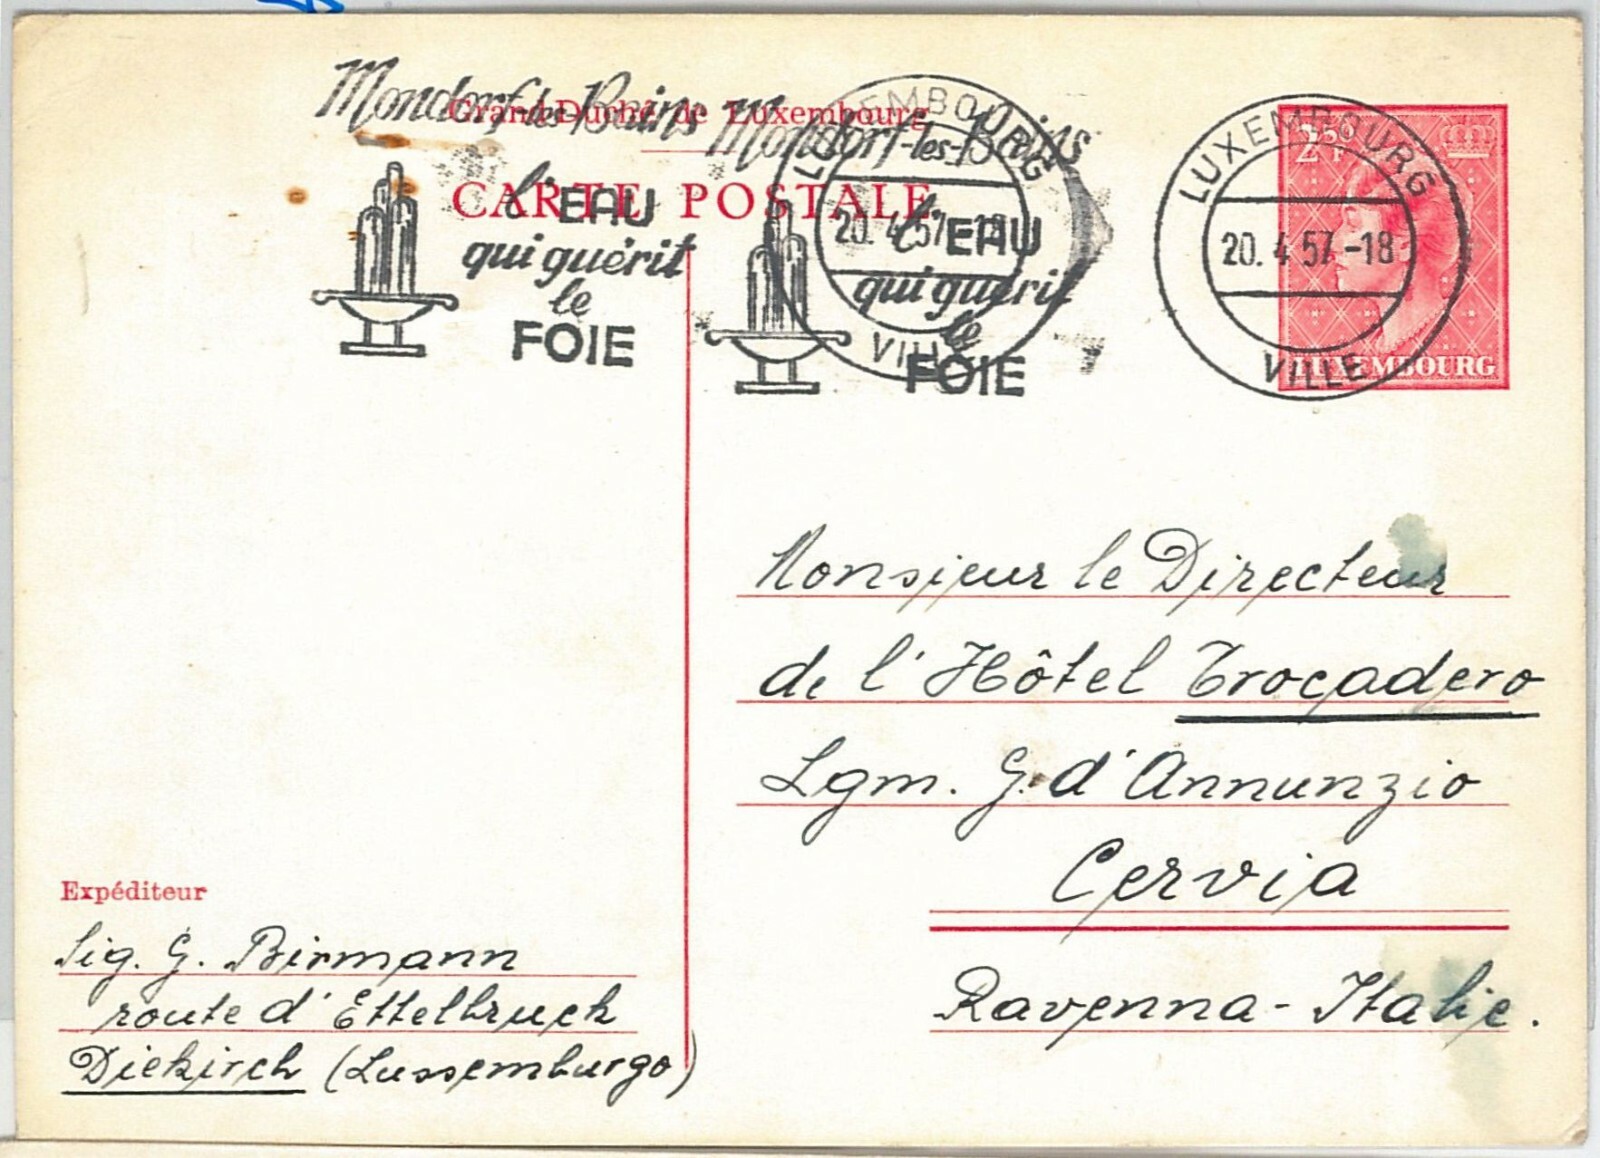 Grand-Duché de Luxembourg
CARTE POSTALE
Mondorf-les-Bains Mondorf-les-Bains
l'EAU
qui guérit
le
FOIE
l'EAU
qui guérit
le
FOIE
LUXEMBOURG
20. 4 57 -18
VILLE
LUXEMBOURG
20. 4 57 -18
VILLE
2F50
LUXEMBOURG
Monsieur le Directeur
de l'Hôtel Trocadero
Lgm. G. d'Annunzio
Cervia
Ravenna - Italie.
Expéditeur
Sig. G. Birmann
route d'Ettelbruck
Diekirch (Lussemburgo)